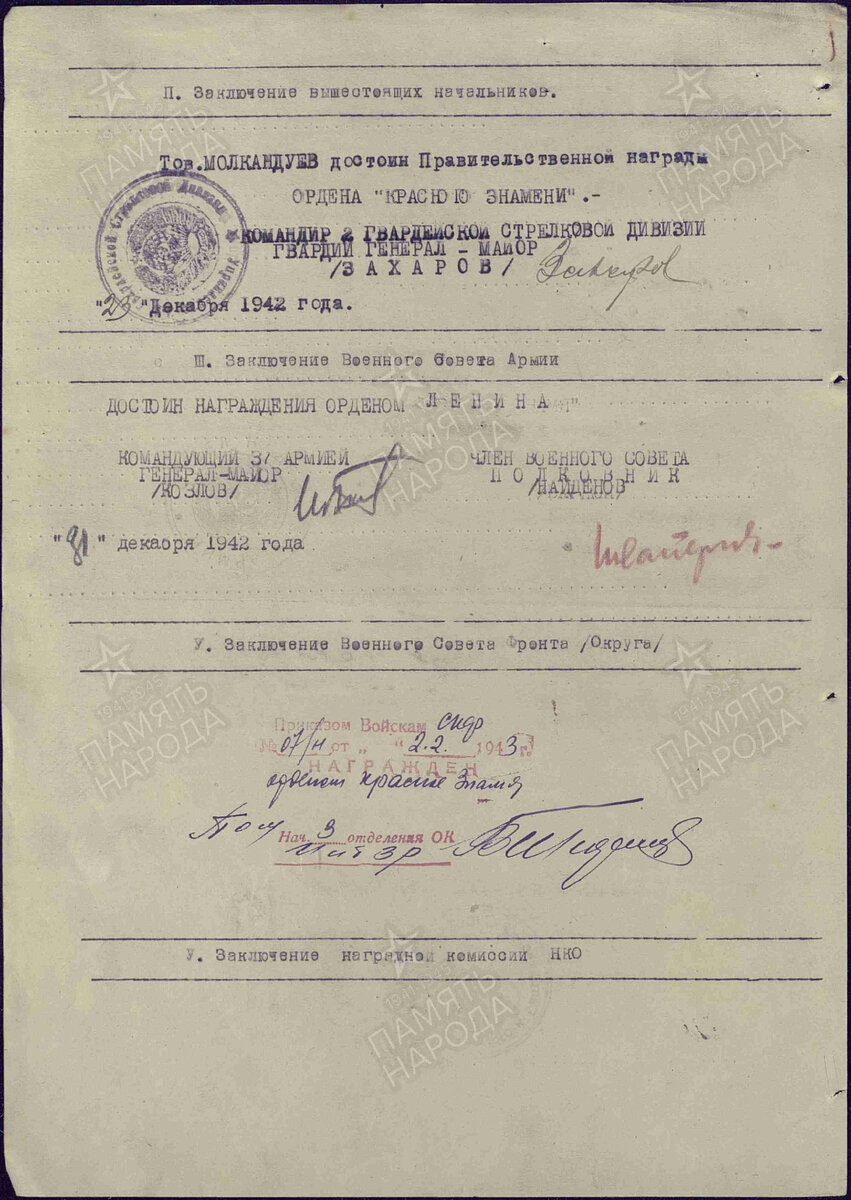 П. Заключение вышестоящих начальников.
Тов.МОЛКАНДУЕВ достоин Правительственной награды
ОРДЕНА "КРАСНОЮ ЗНАМЕНИ".-
КОМАНДИР 2 ГВАРДЕЙСКОЙ СТРЕЛКОВОЙ ДИВИЗИИ
ГВАРДИИ ГЕНЕРАЛ - МАЙОР
/ЗАХАРОВ/ Захаров
"23" Декабря 1942 года.
Ш. Заключение Военного Совета Армии
ДОСТОИН НАГРАЖДЕНИЯ ОРДЕНОМ ЛЕНИНА
КОМАНДУЮЩИЙ 37 АРМИЕЙ ЧЛЕН ВОЕННОГО СОВЕТА
ГЕНЕРАЛ-МАЙОР ПОЛКОВНИК
/КОЗЛОВ/ /НАЙДЕНОВ/
"31" декабря 1942 года
У. Заключение Военного Совета Фронта /Округа/
Приказом Войскам
№ 07/н от „ “ 2.2. 1943 г.
НАГРАЖДЕН
орденом Красное Знамя
Пом Нач. 3 отделения ОК
У. Заключение наградной комиссии НКО
ПАМЯТЬ НАРОДА
1941-1945